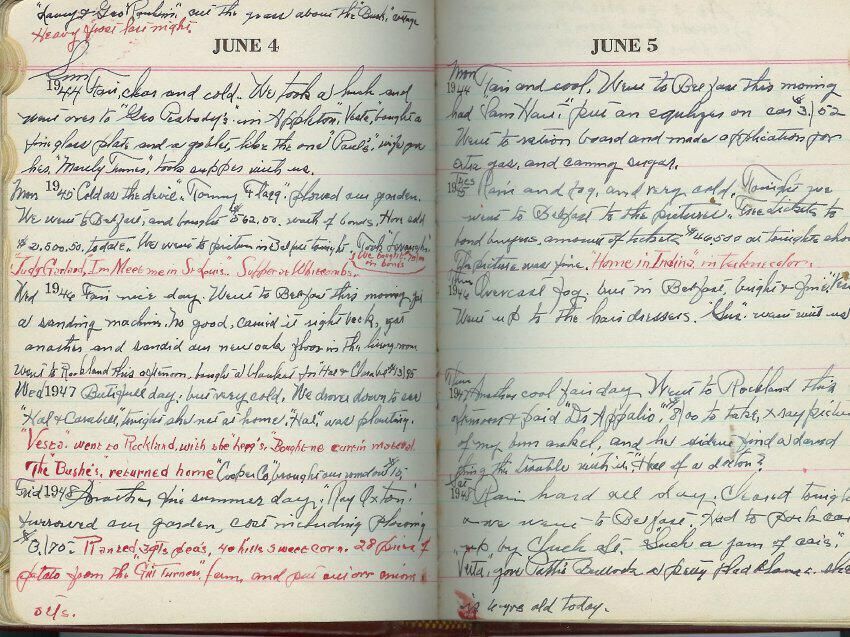 "Lancy & Geo Rankin", cut the grass about the "Bush", cottage
Heavy frost last night.
JUNE 4
Sun
1944 Fair, clear and cold. We took a lunch and
went over to "Geo Peabody's" in Appleton, "Vesta", bought a
fine glass plate and a goblet, like the one "Paul's", wife gave
her. "Merly Times", took supper with us.
Mon 1945 Cold as the devil. "Tommy Flagg" plowed our garden.
We went to Belfast, and bought $562.50, worth of bonds. Have sold
$21,500.50, to date. We went to picture in Belfast tonight.
We bought
in bonds
"Judy Garland", In Meet me in St Louis". Supper at Whitcombs.
Wed 1946 Fair nice day. Went to Belfast this morning got
a sanding machine. No good, carried it right back, got
another and sanded our new oak floor in the living room
Went to Rockland this afternoon, bought a blanket for Hal & Clarabel $13.95
Wed 1947 Butifull day, but very cold. We drove down to see
"Hal & Carabell", tonight she not at home. "Hal", was planting.
"Vesta" went to Rockland, with she Bought me curtain material.
The "Bushe's", returned home "Cooper Co" brought our window
Frid 1948 Another fine summer day. "Roy Oxton"
furrowed our garden, cost including plowing
$8.70. Planted 3qts peas, 40 hills sweet corn. 28 pieces of
potato from the "Gil Turners", farm, and put out our onion
sets.
JUNE 5
Mon
1944 Fair and cool. Went to Belfast this morning
had "Sam Hall" put an equalizer on car $3.52
Went to ration board and made application for
extra gas, and canning sugar.
Tues
1945 Rain and fog, and very cold. Tonight we
went to Belfast to the pictures. Free tickets to
bond buyers, amount of tickets $46,500 at tonights show
The picture was fine. "Home in Indina", in technecolor.
1946 Overcast fog, but in Belfast, bright & fine. "Vesta"
Went up to the hairdressers. "Gus" went with us
Thur
1947 Another cool fair day. Went to Rockland this
afternoon & paid "Dr Appalio," $8.00 to take, x ray picture
of my bum ankel, and he didn't find a darned
thing the trouble with it. "Hell of a doctor"?
Sat
1948 Rain hard all day. Cleared tonight
& we went to Belfast. Had to park car
up, by Church St. "Such a jam of cars".
"Vesta", gave "Pattie Bullock a pretty plad blouse. she
is 6 yrs old today.